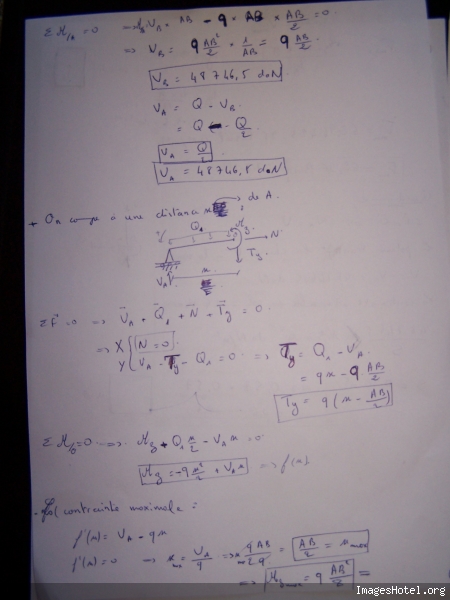 Σ M/A = 0 → VB × AB - q × AB × AB/2 = 0
⇒ VB = q AB²/2 × 1/AB = q AB/2
VB = 48746,5 daN
VA = Q - VB
= Q - Q/2
VA = Q/2
VA = 48746,5 daN
+ On coupe à une distance x de A.
Q1
N
Ty
VA
x
ΣF = 0 ⇒ VA + Q1 + N + Ty = 0
⇒ X { N = 0
Y { VA - Ty - Q1 = 0 ⇒ Ty = Q1 - VA
= qx - q AB/2
Ty = q (x - AB/2)
Σ M/G = 0 ⇒ Mz + Q1 x/2 - VA x = 0
Mz = -q x²/2 + VA x ⇒ f(x)
contrainte maximale =
f'(x) = VA - qx
f'(x) = 0 ⇒ x = VA/q ⇒ x = q AB/2q = AB/2 = x max
⇒ Mz max = q AB²/ =
ImagesHotel.org